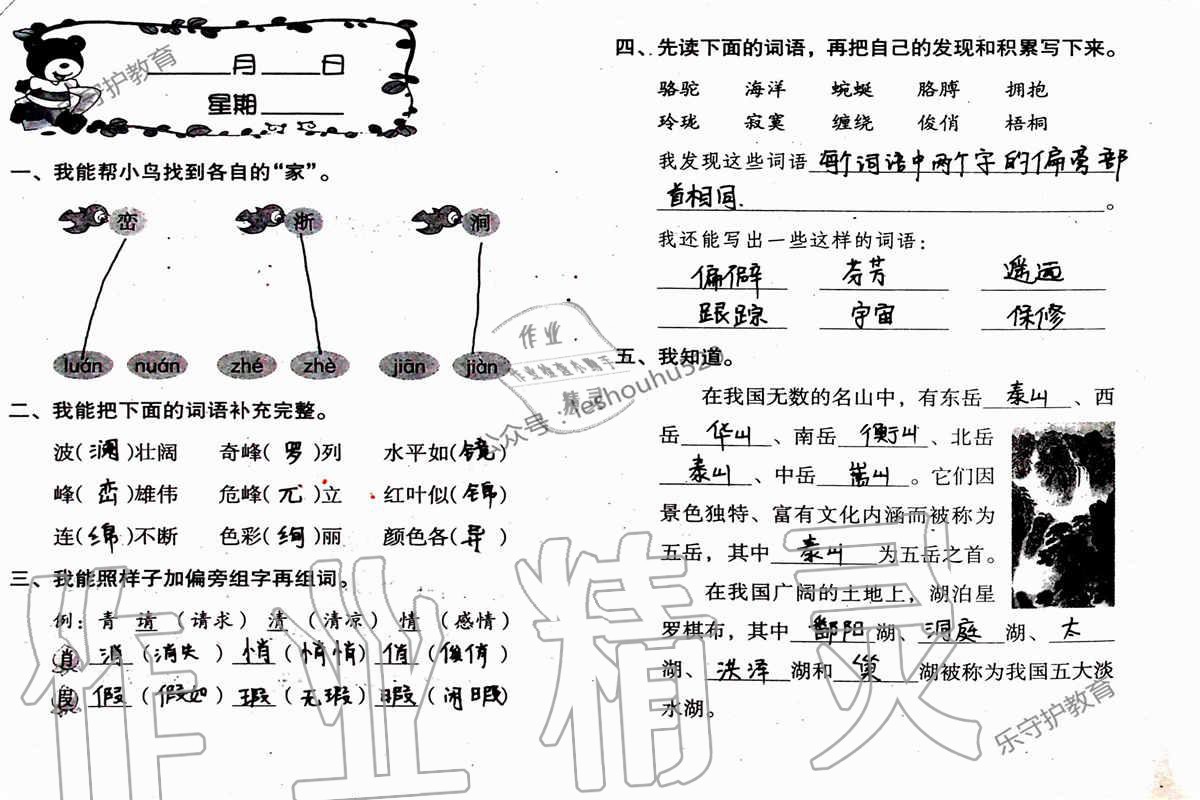 ______月____日
星期______
乐守护教育
一、我能帮小鸟找到各自的“家”。
峦 浙 涧
luán nuán zhé zhè jiān jiàn
二、我能把下面的词语补充完整。
波(澜)壮阔 奇峰(罗)列 水平如(镜)
峰(峦)雄伟 危峰(兀)立 红叶似(锦)
连(绵)不断 色彩(绚)丽 颜色各(异)
三、我能照样子加偏旁组字再组词。
例：青 请 （请求） 清 （清凉） 情 （感情）
肖 消 （消失） 悄 （悄悄） 俏 （俊俏）
叚 假 （假如） 瑕 （无瑕） 暇 （闲暇）
四、先读下面的词语，再把自己的发现和积累写下来。
骆驼 海洋 蜿蜒 胳膊 拥抱
玲珑 寂寞 缠绕 俊俏 梧桐
我发现这些词语每个词语中两个字的偏旁部
首相同.。
我还能写出一些这样的词语：
偏僻 芬芳 遥远
跟踪 宇宙 保修
五、我知道。
在我国无数的名山中，有东岳泰山、西
岳华山、南岳衡山、北岳
泰山、中岳嵩山。它们因
景色独特、富有文化内涵而被称为
五岳，其中泰山为五岳之首。
在我国广阔的土地上，湖泊星
罗棋布，其中鄱阳湖、洞庭湖、太
湖、洪泽湖和巢湖被称为我国五大淡
水湖。
作业
作业检查小助手
精灵
公众号：leshouhu520
作业精灵
乐守护教育